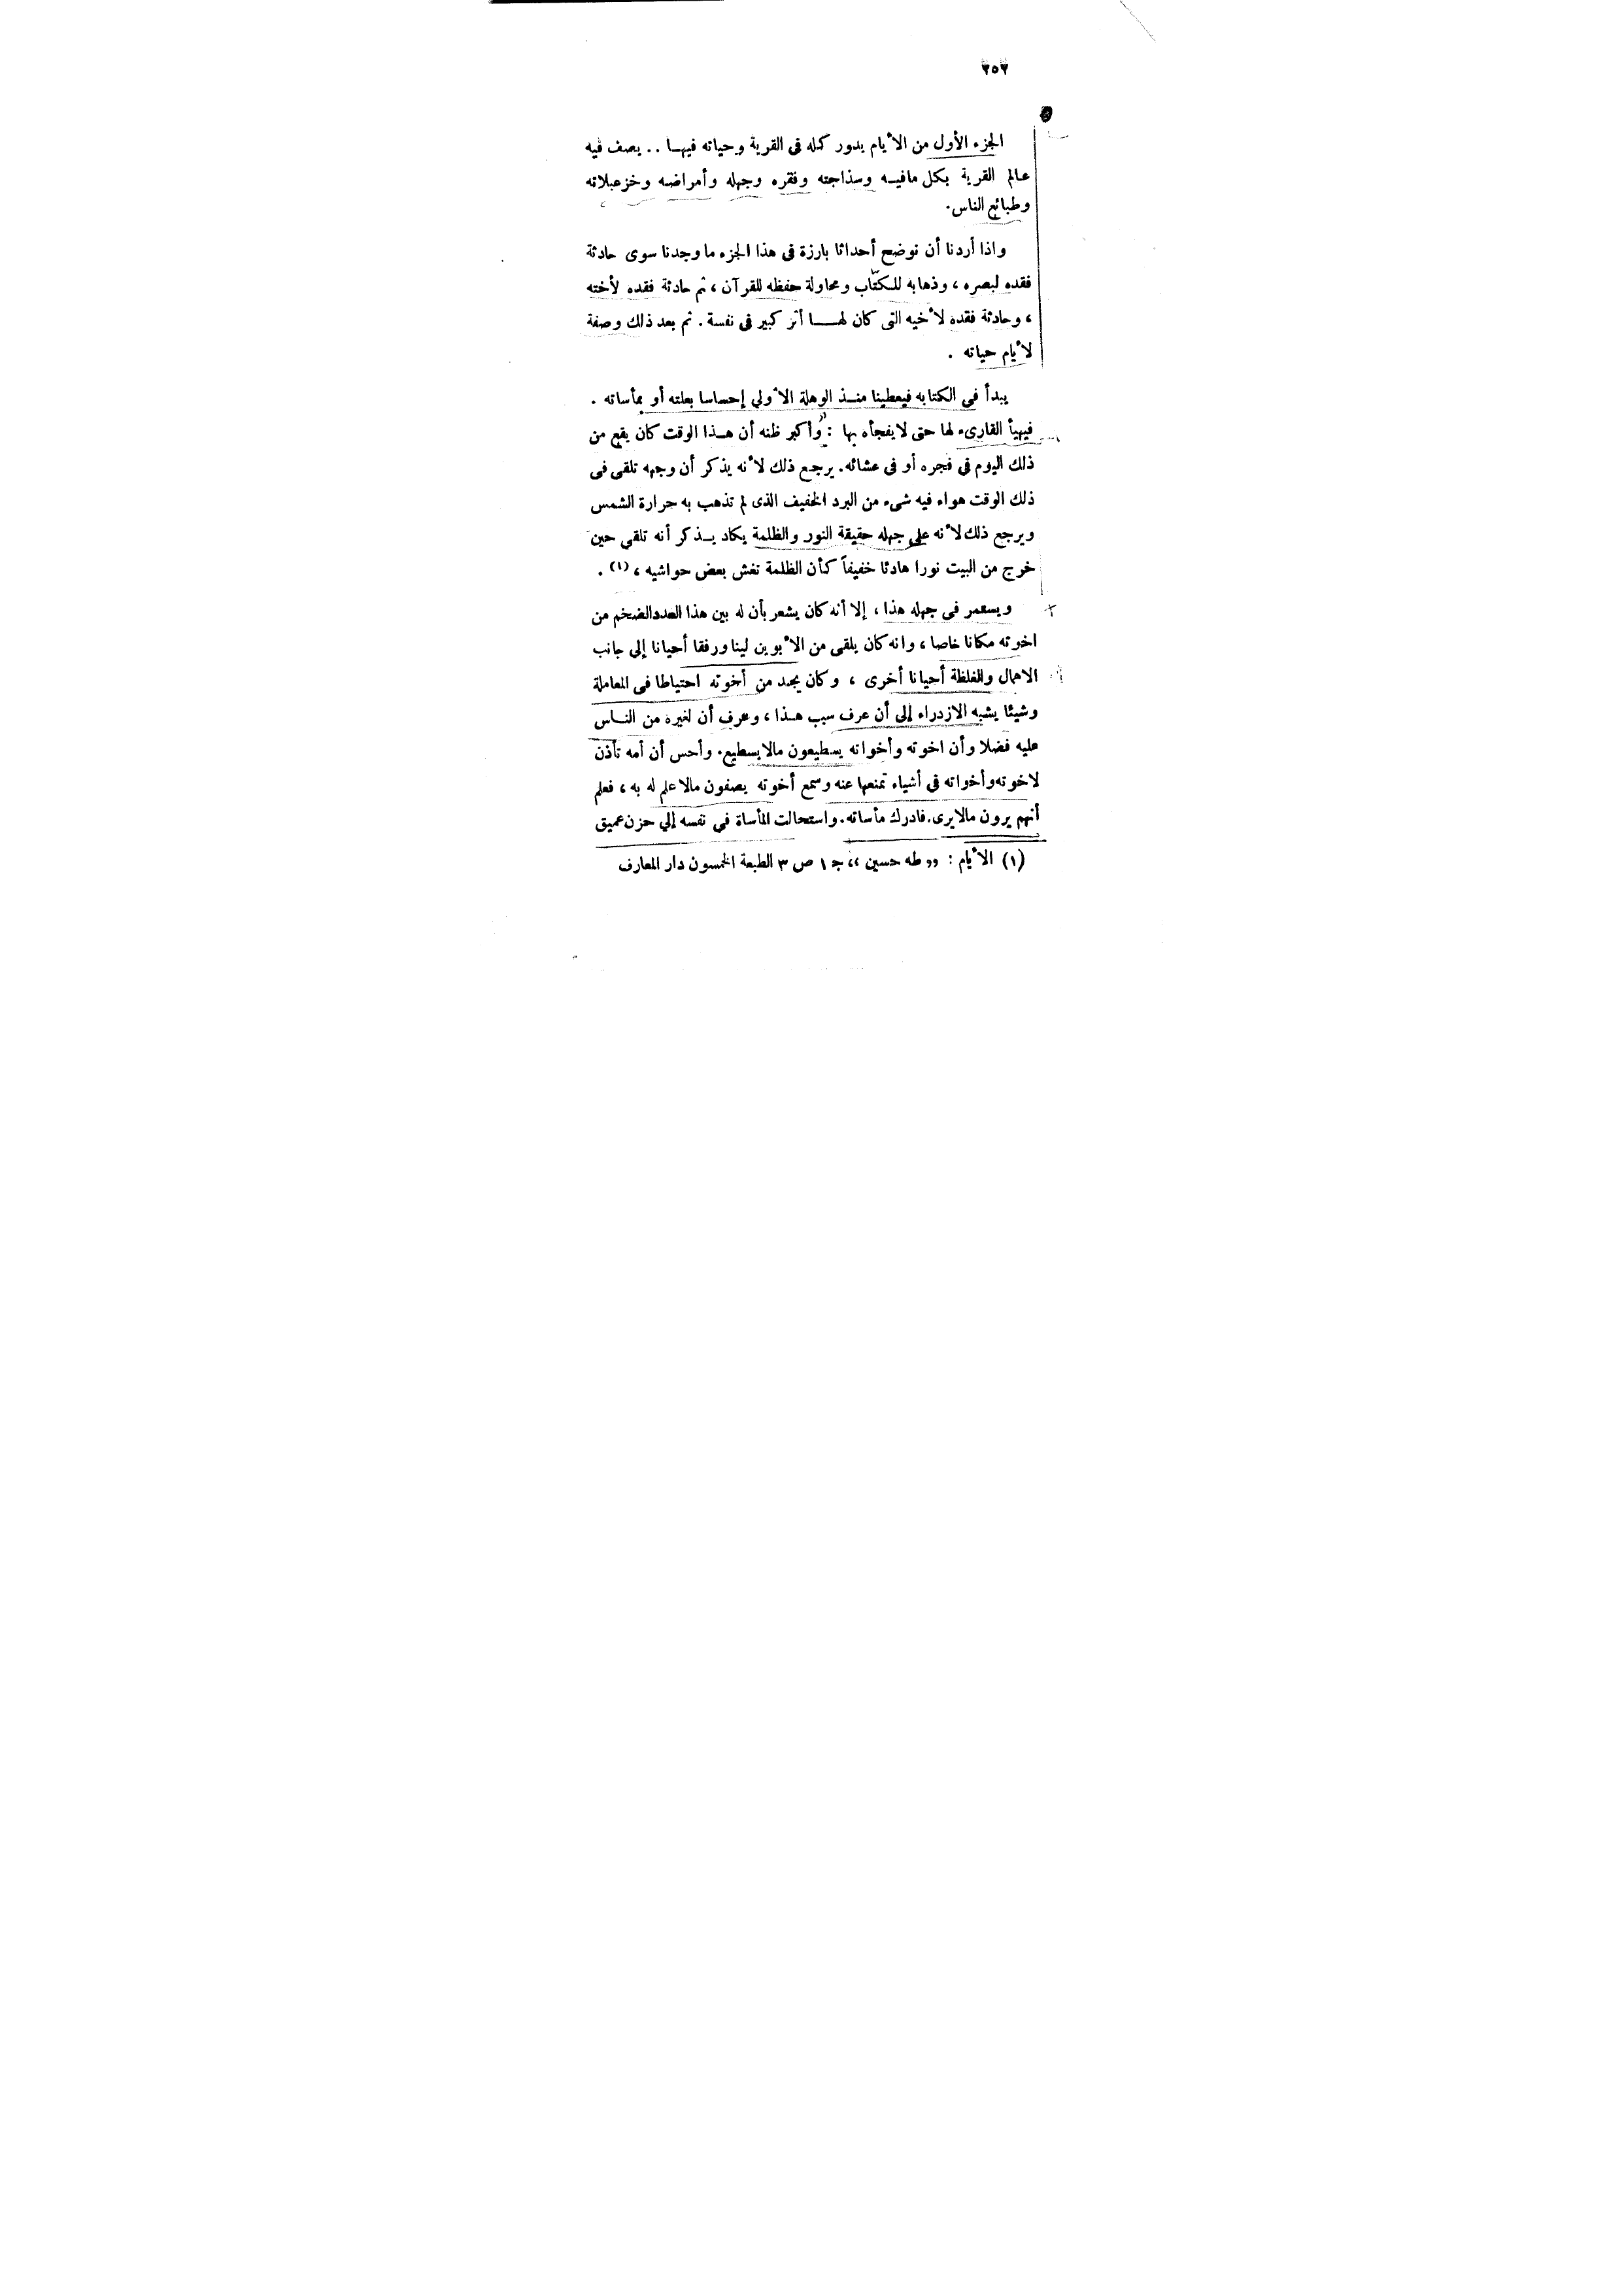 ٢٥٢
الجزء الأول من الأيام يدور كله فى القرية وحياته فيها .. يصف فيه
عالم القرية بكل مافيه وسذاجته وفقره وجهله وأمراضه وخزعبلاته
وطبائع الناس.
واذا أردنا أن نوضح أحداثا بارزة فى هذا الجزء ما وجدنا سوى حادثة
فقده لبصره ، وذهابه للكتّاب ومحاولة حفظه للقرآن ، ثم حادثة فقده لأخته
، وحادثة فقده لأخيه التى كان لها أثر كبير فى نفسة . ثم بعد ذلك وصفة
لأيام حياته .
يبدأ فى الكتابه فيعطينا منذ الوهلة الأولي إحساسا بعلته أو بمأساته .
فيهيأ القارىء لها حتى لايفجأه بها : "وأكبر ظنه أن هذا الوقت كان يقع من
ذلك اليوم فى فجره أو فى عشائه. يرجع ذلك لأنه يذكر أن وجهه تلقى فى
ذلك الوقت هواء فيه شىء من البرد الخفيف الذى لم تذهب به حرارة الشمس
ويرجع ذلك لأنه على جهله حقيقة النور والظلمة يكاد يذكر أنه تلقى حين
خرج من البيت نورا هادئا خفيفاً كأن الظلمة تغش بعض حواشيه ، (١) .
ويستمر فى جهله هذا ، إلا أنه كان يشعر بأن له بين هذا العدد الضخم من
اخوته مكانا خاصا ، وانه كان يلقى من الأبوين لينا ورفقا أحيانا إلى جانب
الاهمال والغلظة أحيانا أخرى ، وكان يجد من أخوته احتياطا فى المعاملة
وشيئا يشبه الازدراء إلى أن عرف سبب هذا ، وعرف أن لغيره من الناس
عليه فضلا وأن اخوته وأخواته يسطيعون مالايسطيع. وأحس أن أمه تأذن
لاخوته وأخواته فى أشياء تمنعها عنه وسمع أخوته يصفون مالا علم له به ، فعلم
أنهم يرون مالايرى. فادرك مأساته. واستحالت المأساة فى نفسه إلي حزن عميق
(١) الأيام : ,, طه حسين ،، جـ ١ ص ٣ الطبعة الخمسون دار المعارف